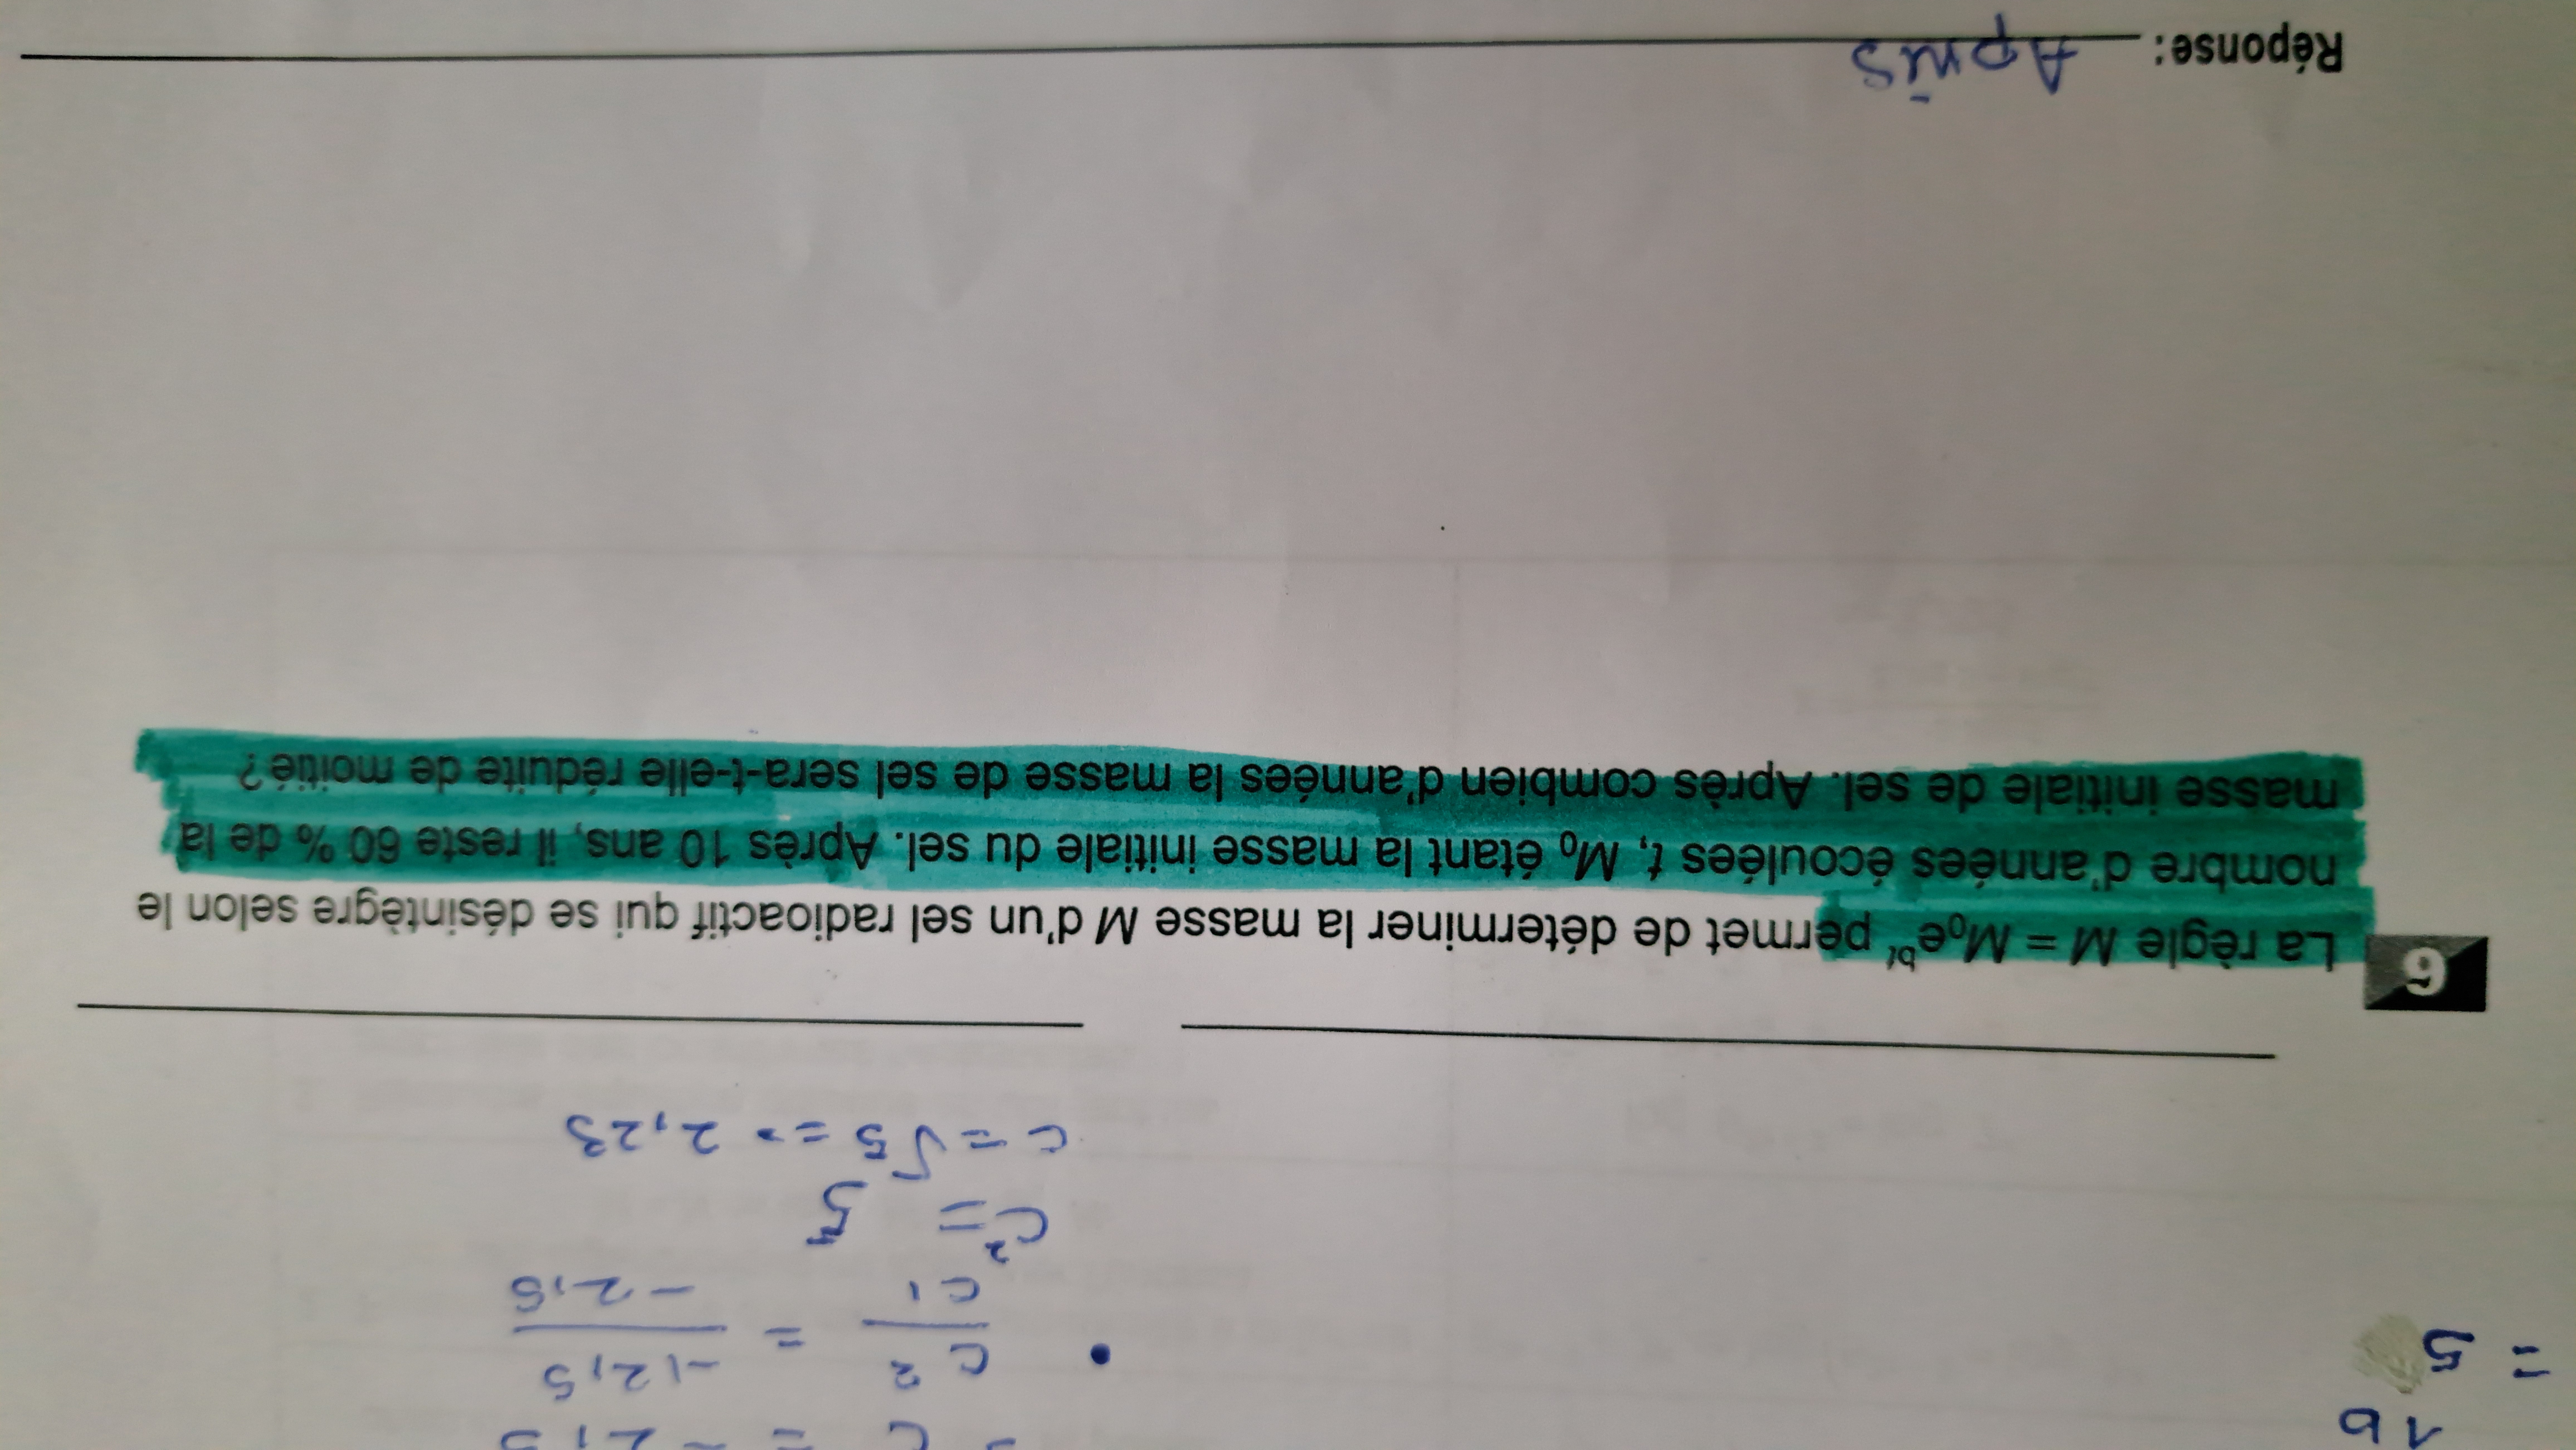 1b
= 5
= C = -2,5
• C² / C¹ = -12,5 / -2,5
C² = 5
C = √5 = 2,23
6 La règle M = M₀eᵇᵗ permet de déterminer la masse M d'un sel radioactif qui se désintègre selon le
nombre d'années écoulées t, M₀ étant la masse initiale du sel. Après 10 ans, il reste 60 % de la
masse initiale de sel. Après combien d'années la masse de sel sera-t-elle réduite de moitié?
Réponse: Après